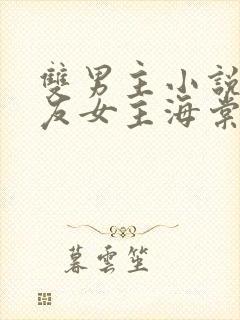 雙男主小說
友女主海棠
暮雲笙